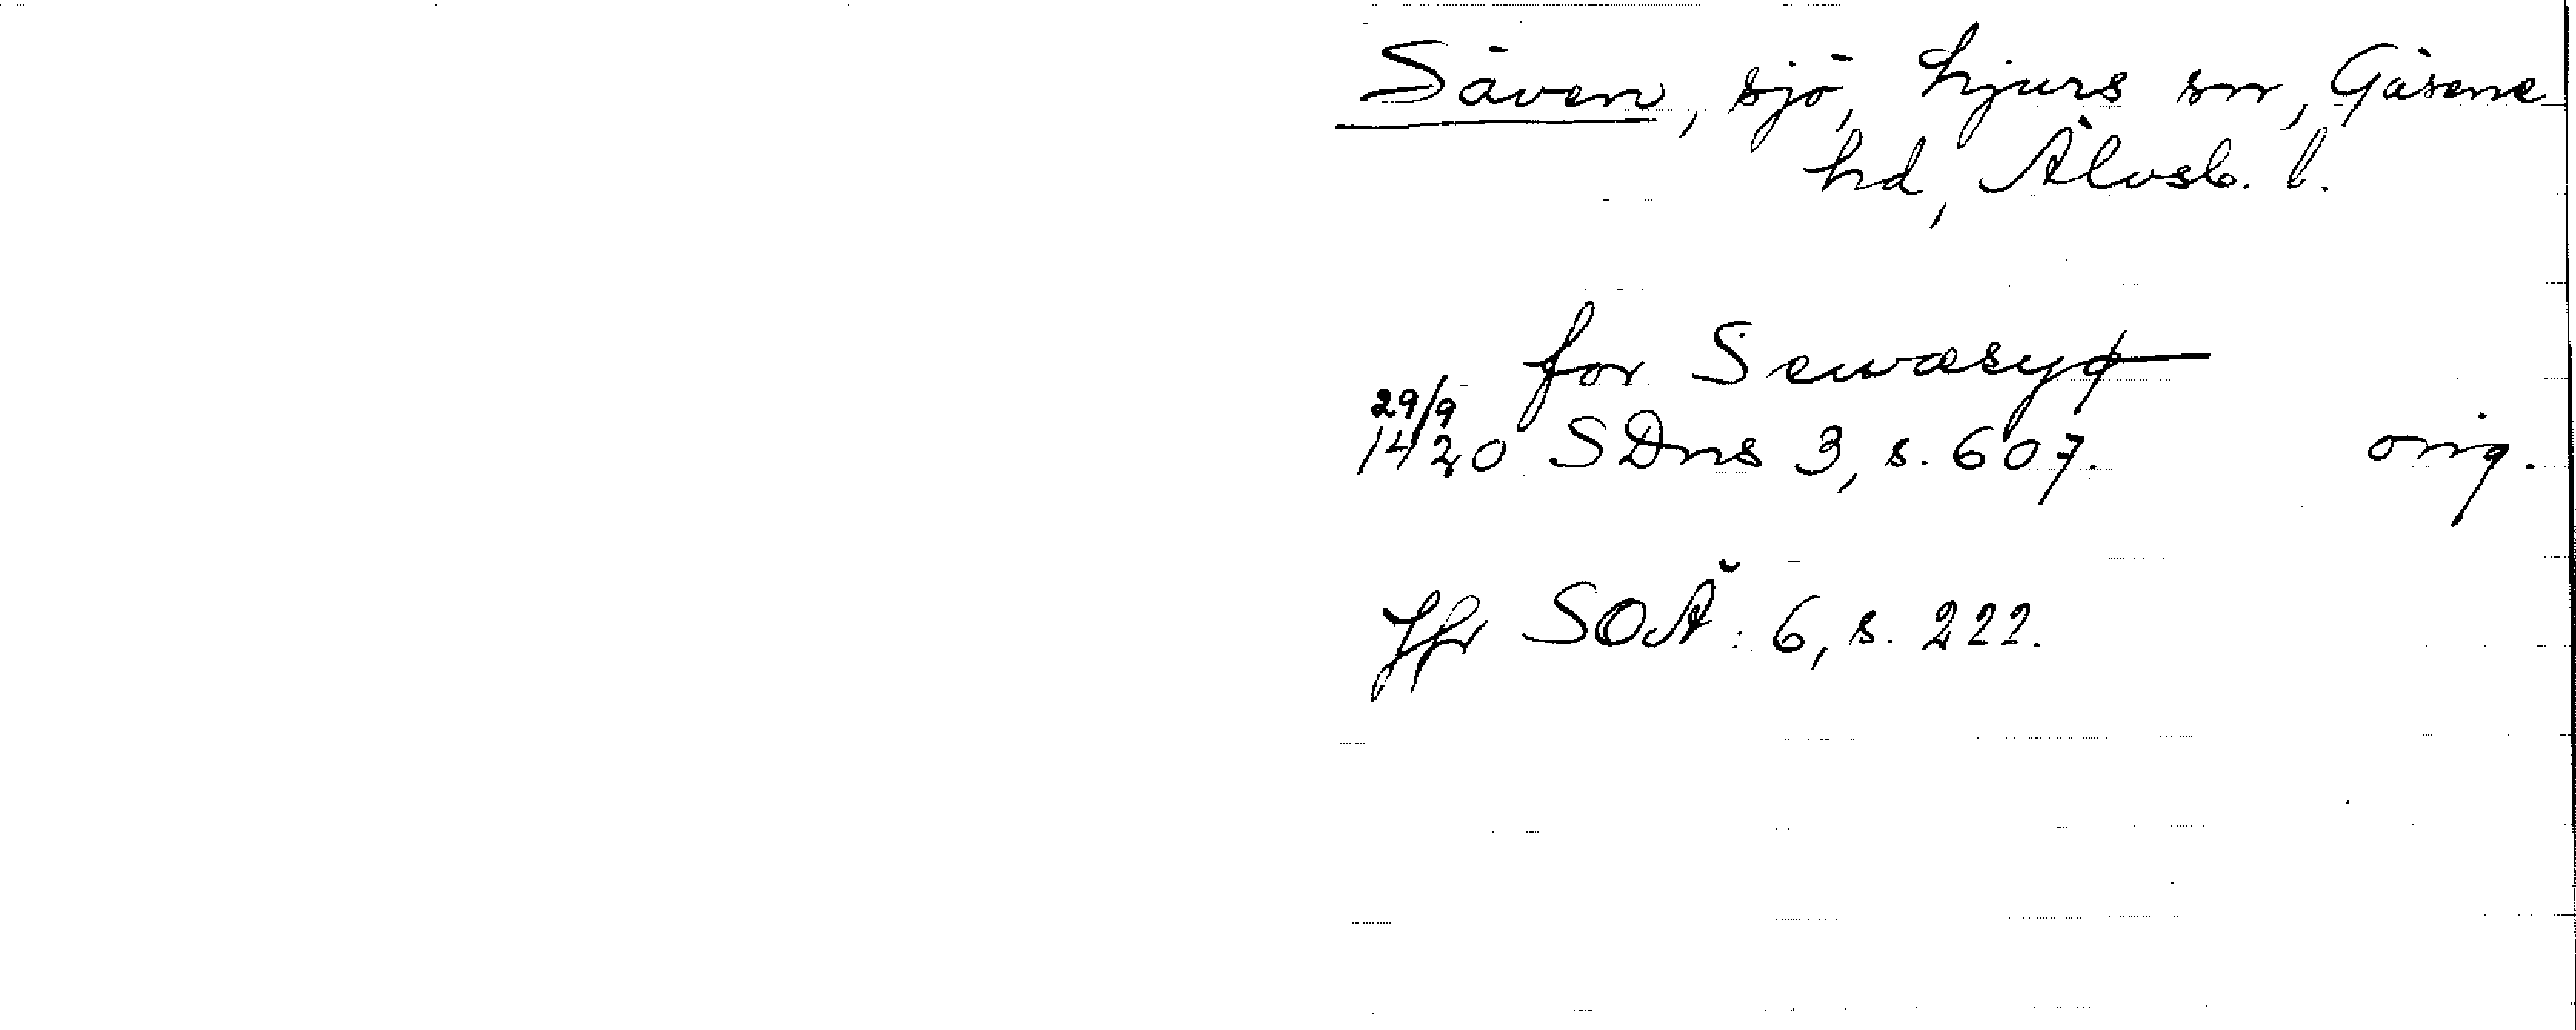 Säven, sjö, hjurs sn, Gäsene
hd, Älvsb. l.
for Sewæsyø
29/9
1420 SDns 3, s. 607. orig.
Jfr SOÄ: 6, s. 222.